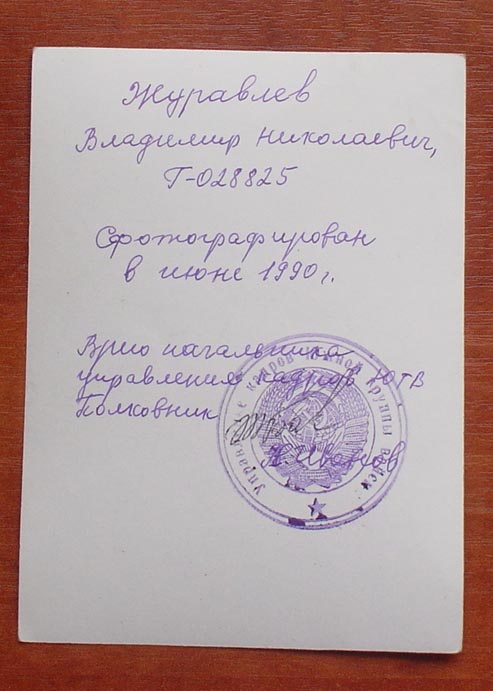 Журавлев
Владимир Николаевич,
Г-028825
Сфотографирован
в июне 1990г.
Врио начальника
управления кадров ЮГВ
Полковник
Н. Иванов
Управление кадров Южной группы войск